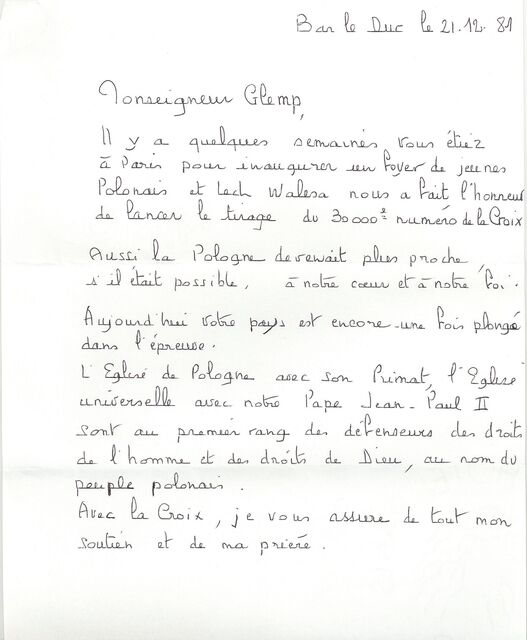 Bar le Duc le 21.12.81
Monseigneur Glemp,
Il y a quelques semaines vous étiez
à Paris pour inaugurer un foyer de jeunes
Polonais et Lech Walesa nous a fait l'honneur
de lancer le tirage du 30000e numéro de la Croix
Aussi la Pologne devenait plus proche,
s'il était possible, à notre cœur et à notre foi.
Aujourd'hui votre pays est encore une fois plongé
dans l'épreuve.
L'Eglise de Pologne avec son Primat, l'Eglise
universelle avec notre Pape Jean-Paul II
sont au premier rang des défenseurs des droits
de l'homme et des droits de Dieu, au nom du
peuple polonais.
Avec la Croix, je vous assure de tout mon
soutien et de ma prière.